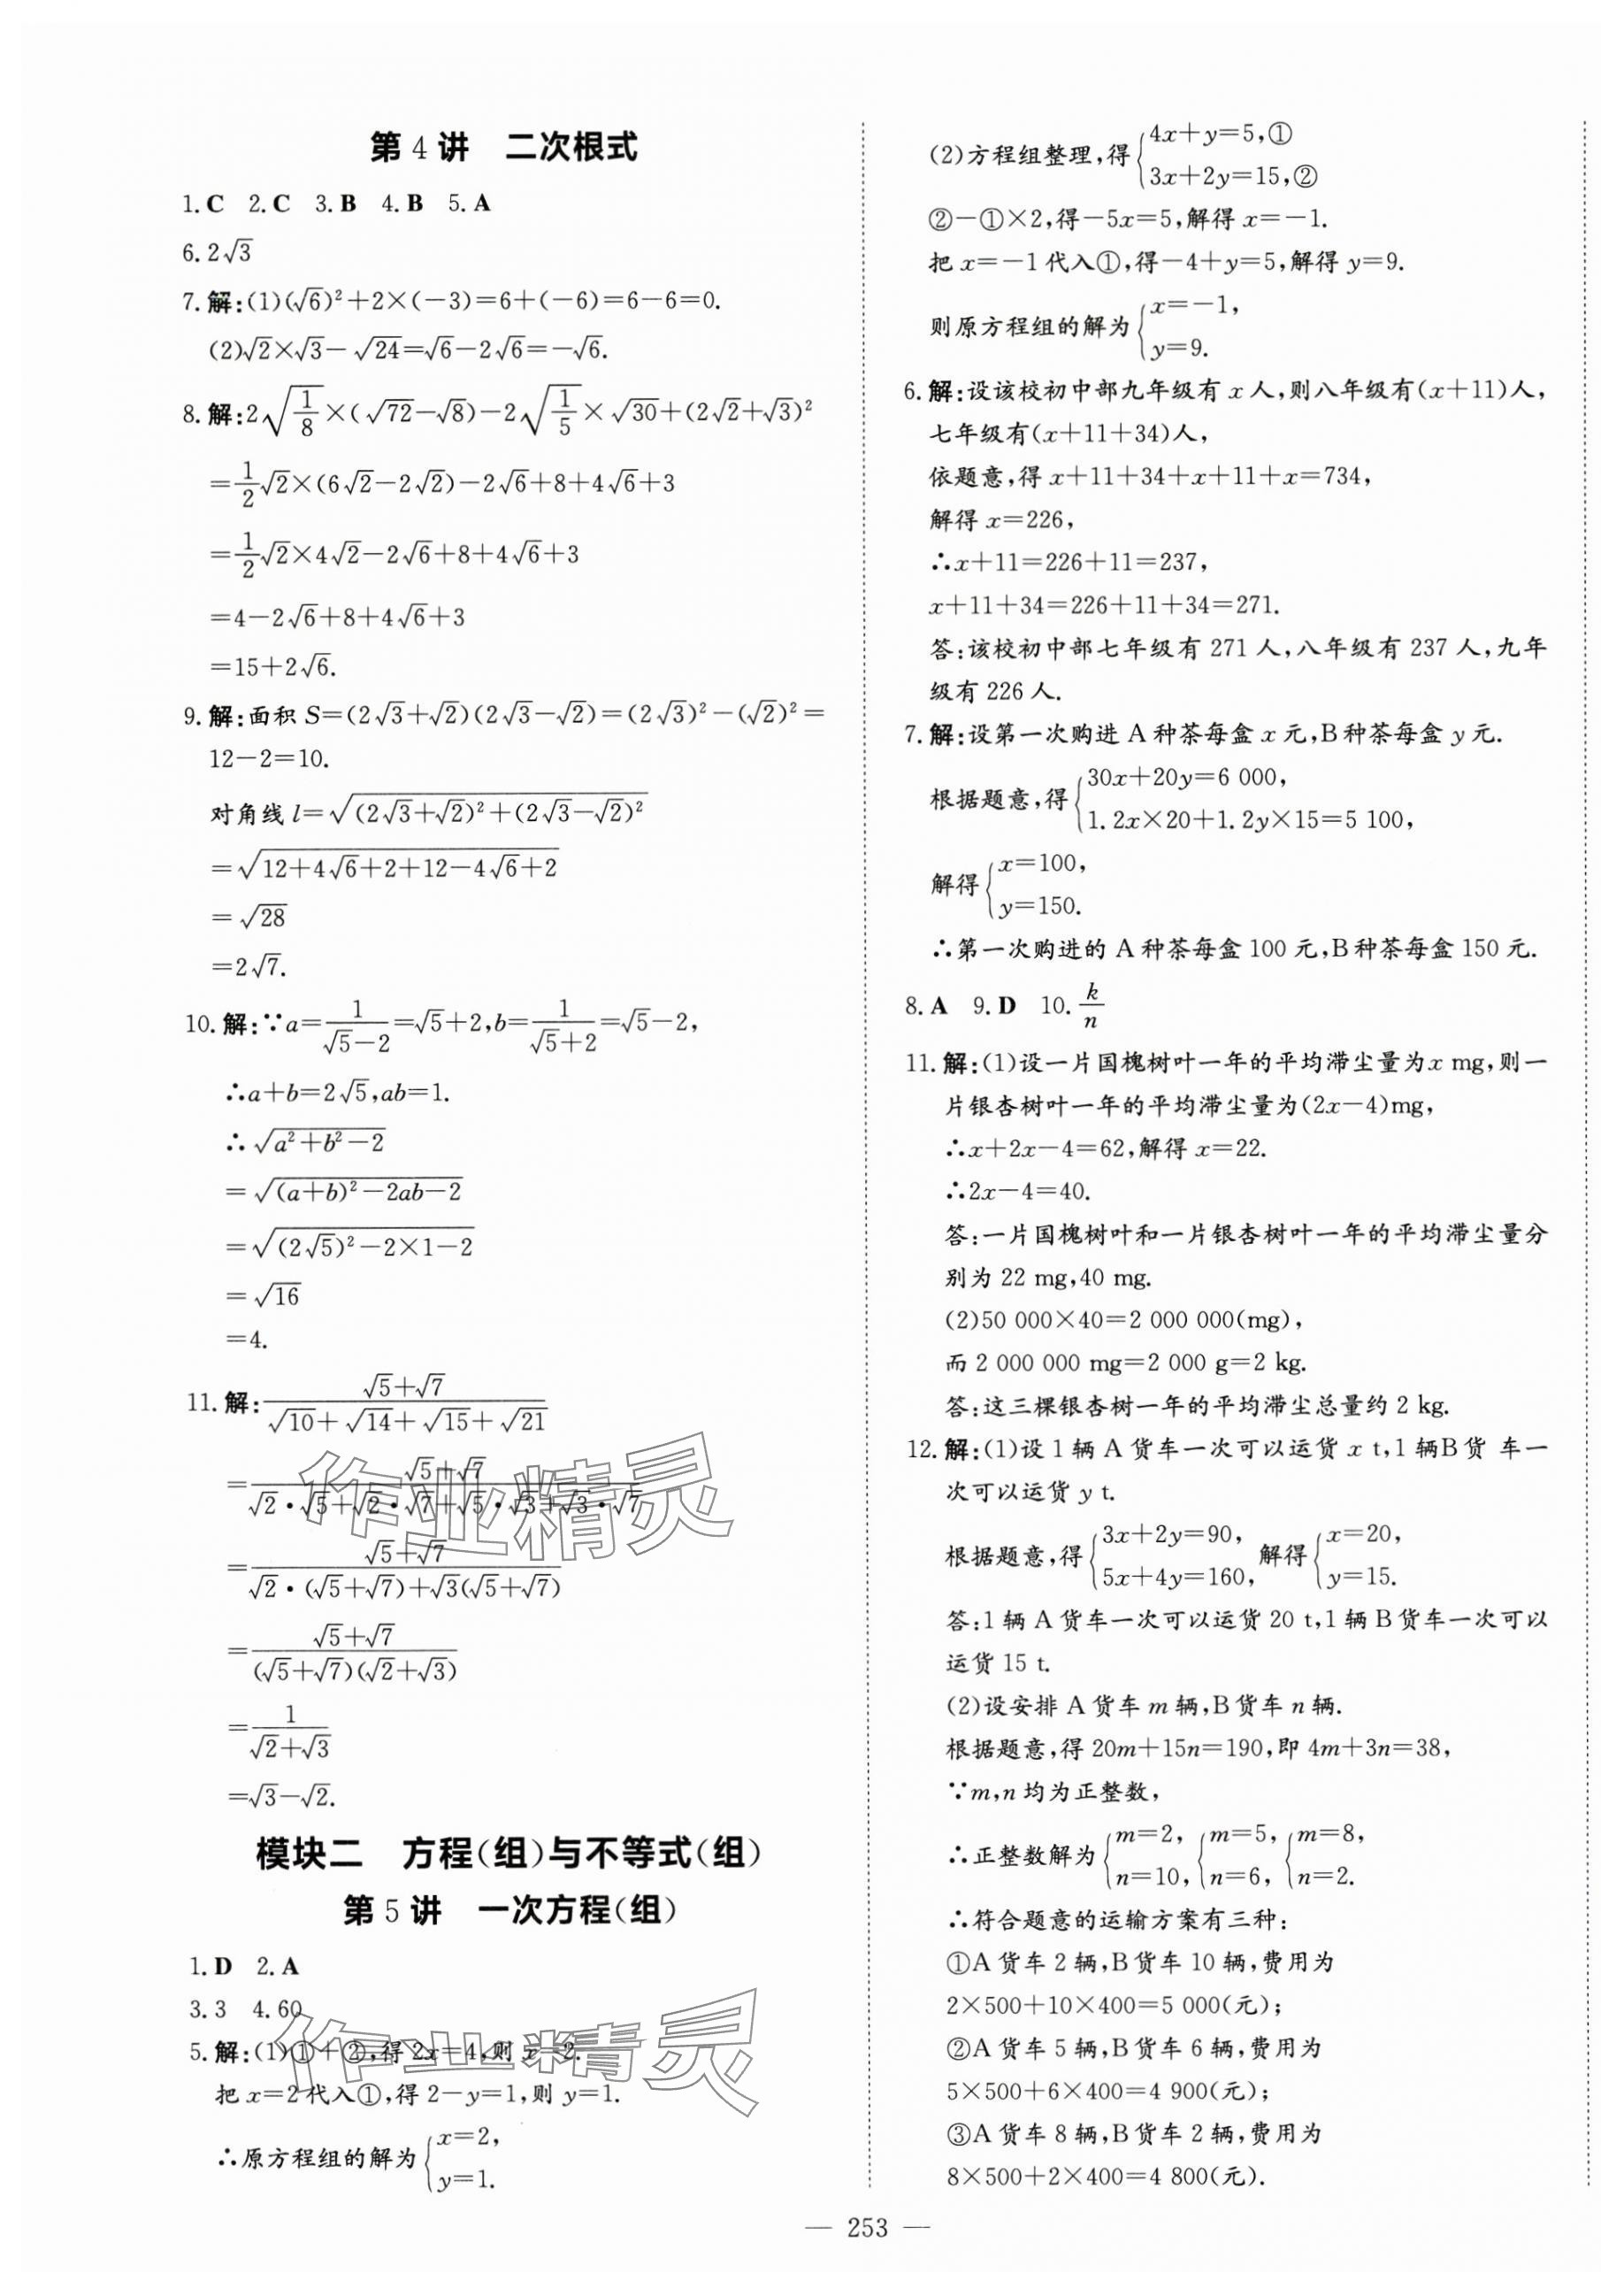 第 4 讲　二次根式
1. C　2. C　3. B　4. B　5. A
6. 2√3
7. 解:(1)(√6)²+2×(−3)=6+(−6)=6−6=0.
(2)√2×√3−√24=√6−2√6=−√6.
8. 解:2√(1/8)×(√72−√8)−2√(1/5)×√30+(2√2+√3)²
=1/2√2×(6√2−2√2)−2√6+8+4√6+3
=1/2√2×4√2−2√6+8+4√6+3
=4−2√6+8+4√6+3
=15+2√6.
9. 解:面积 S=(2√3+√2)(2√3−√2)=(2√3)²−(√2)²=
12−2=10.
对角线 l=√((2√3+√2)²+(2√3−√2)²)
=√(12+4√6+2+12−4√6+2)
=√28
=2√7.
10. 解:∵a=1/(√5−2)=√5+2,b=1/(√5+2)=√5−2,
∴a+b=2√5,ab=1.
∴√(a²+b²−2)
=√((a+b)²−2ab−2)
=√((2√5)²−2×1−2)
=√16
=4.
11. 解:(√5+√7)/(√10+√14+√15+√21)
=(√5+√7)/(√2·√5+√2·√7+√5·√3+√3·√7)
=(√5+√7)/(√2·(√5+√7)+√3(√5+√7))
=(√5+√7)/((√5+√7)(√2+√3))
=1/(√2+√3)
=√3−√2.
模块二　方程(组)与不等式(组)
第 5 讲　一次方程(组)
1. D　2. A
3. 3　4. 60
5. 解:(1)①+②,得 2x=4,则 x=2.
把 x=2 代入①,得 2−y=1,则 y=1.
∴原方程组的解为{x=2,
y=1.
(2)方程组整理,得{4x+y=5,①
3x+2y=15,②
②−①×2,得−5x=5,解得 x=−1.
把 x=−1 代入①,得−4+y=5,解得 y=9.
则原方程组的解为{x=−1,
y=9.
6. 解:设该校初中部九年级有 x 人,则八年级有(x+11)人,
七年级有(x+11+34)人,
依题意,得 x+11+34+x+11+x=734,
解得 x=226,
∴x+11=226+11=237,
x+11+34=226+11+34=271.
答:该校初中部七年级有 271 人,八年级有 237 人,九年
级有 226 人.
7. 解:设第一次购进 A 种茶每盒 x 元,B 种茶每盒 y 元.
根据题意,得{30x+20y=6 000,
1.2x×20+1.2y×15=5 100,
解得{x=100,
y=150.
∴第一次购进的 A 种茶每盒 100 元,B 种茶每盒 150 元.
8. A　9. D　10. k/n
11. 解:(1)设一片国槐树叶一年的平均滞尘量为x mg,则一
片银杏树叶一年的平均滞尘量为(2x−4)mg,
∴x+2x−4=62,解得 x=22.
∴2x−4=40.
答:一片国槐树叶和一片银杏树叶一年的平均滞尘量分
别为 22 mg,40 mg.
(2)50 000×40=2 000 000(mg),
而 2 000 000 mg=2 000 g=2 kg.
答:这三棵银杏树一年的平均滞尘总量约 2 kg.
12. 解:(1)设 1 辆 A 货车一次可以运货 x t,1 辆B 货 车一
次可以运货 y t.
根据题意,得{3x+2y=90,　解得{x=20,
5x+4y=160,　y=15.
答:1 辆 A 货车一次可以运货 20 t,1 辆 B 货车一次可以
运货 15 t.
(2)设安排 A 货车 m 辆,B 货车 n 辆.
根据题意,得 20m+15n=190,即 4m+3n=38,
∵m,n 均为正整数,
∴正整数解为{m=2,{m=5,{m=8,
n=10,　n=6,　n=2.
∴符合题意的运输方案有三种:
①A 货车 2 辆,B 货车 10 辆,费用为
2×500+10×400=5 000(元);
②A 货车 5 辆,B 货车 6 辆,费用为
5×500+6×400=4 900(元);
③A 货车 8 辆,B 货车 2 辆,费用为
8×500+2×400=4 800(元).
— 253 —
作业精灵
作业精灵